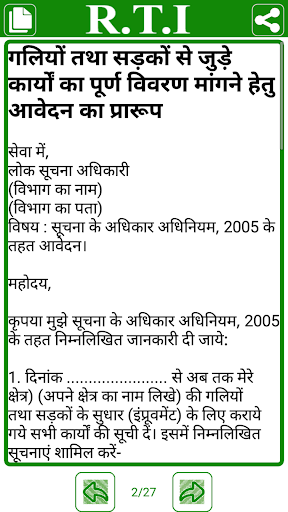 R.T.I
गलियों तथा सड़कों से जुड़े
कार्यों का पूर्ण विवरण मांगने हेतु
आवेदन का प्रारूप
सेवा में,
लोक सूचना अधिकारी
(विभाग का नाम)
(विभाग का पता)
विषय : सूचना के अधिकार अधिनियम, 2005 के
तहत आवेदन।
महोदय,
कृपया मुझे सूचना के अधिकार अधिनियम, 2005
के तहत निम्नलिखित जानकारी दी जाये:
1. दिनांक ....................... से अब तक मेरे
क्षेत्र) (अपने क्षेत्र का नाम लिखे) की गलियों
तथा सड़कों के सुधार (इंप्रूवमेंट) के लिए कराये
गये सभी कार्यों की सूची दें। इसमें निम्नलिखित
सूचनाएं शामिल करें-
2/27